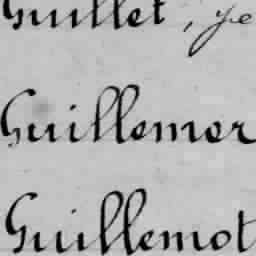 Guillet, je
Guillemer
Guillemot